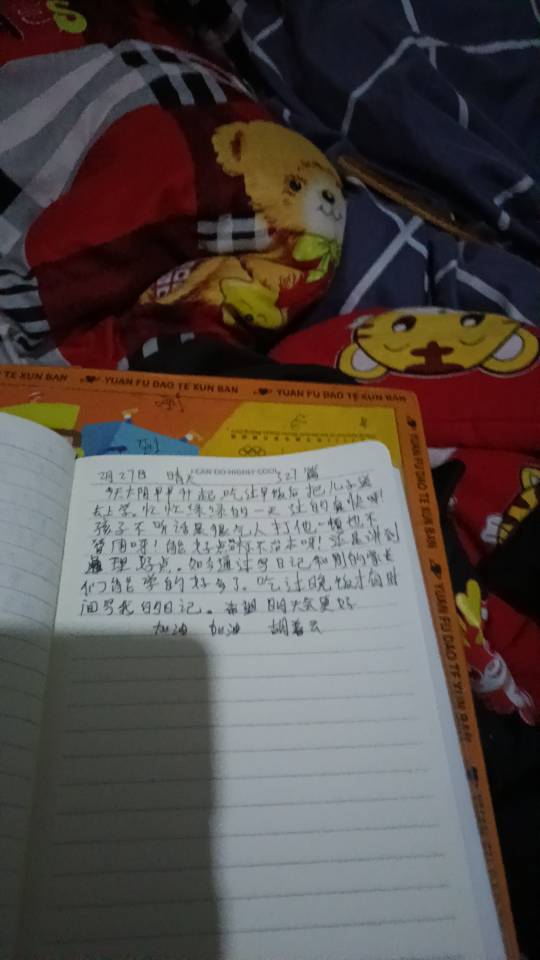 YUAN FU DAO TE XUN BAN
YUAN FU DAO TE XUN BAN
I CAN DO HIGHLY COOL
2月27日 晴天 327篇
今天太阳早早升起吃过早饭后把儿子送
去上学。忙忙绿绿的一天过的真快呀!
孩子不听话是很气人打他一顿也不
管用呀!能好点 不出来呀!还是讲到
理好点。如今通过写日记和别的家长
们了能学的好多了。吃过晚饭才有时
间写我的日记。希望明天会更好
加油 加油 胡
YUAN FU DAO TE XUN BAN
YUAN FU DAO TE XUN BAN